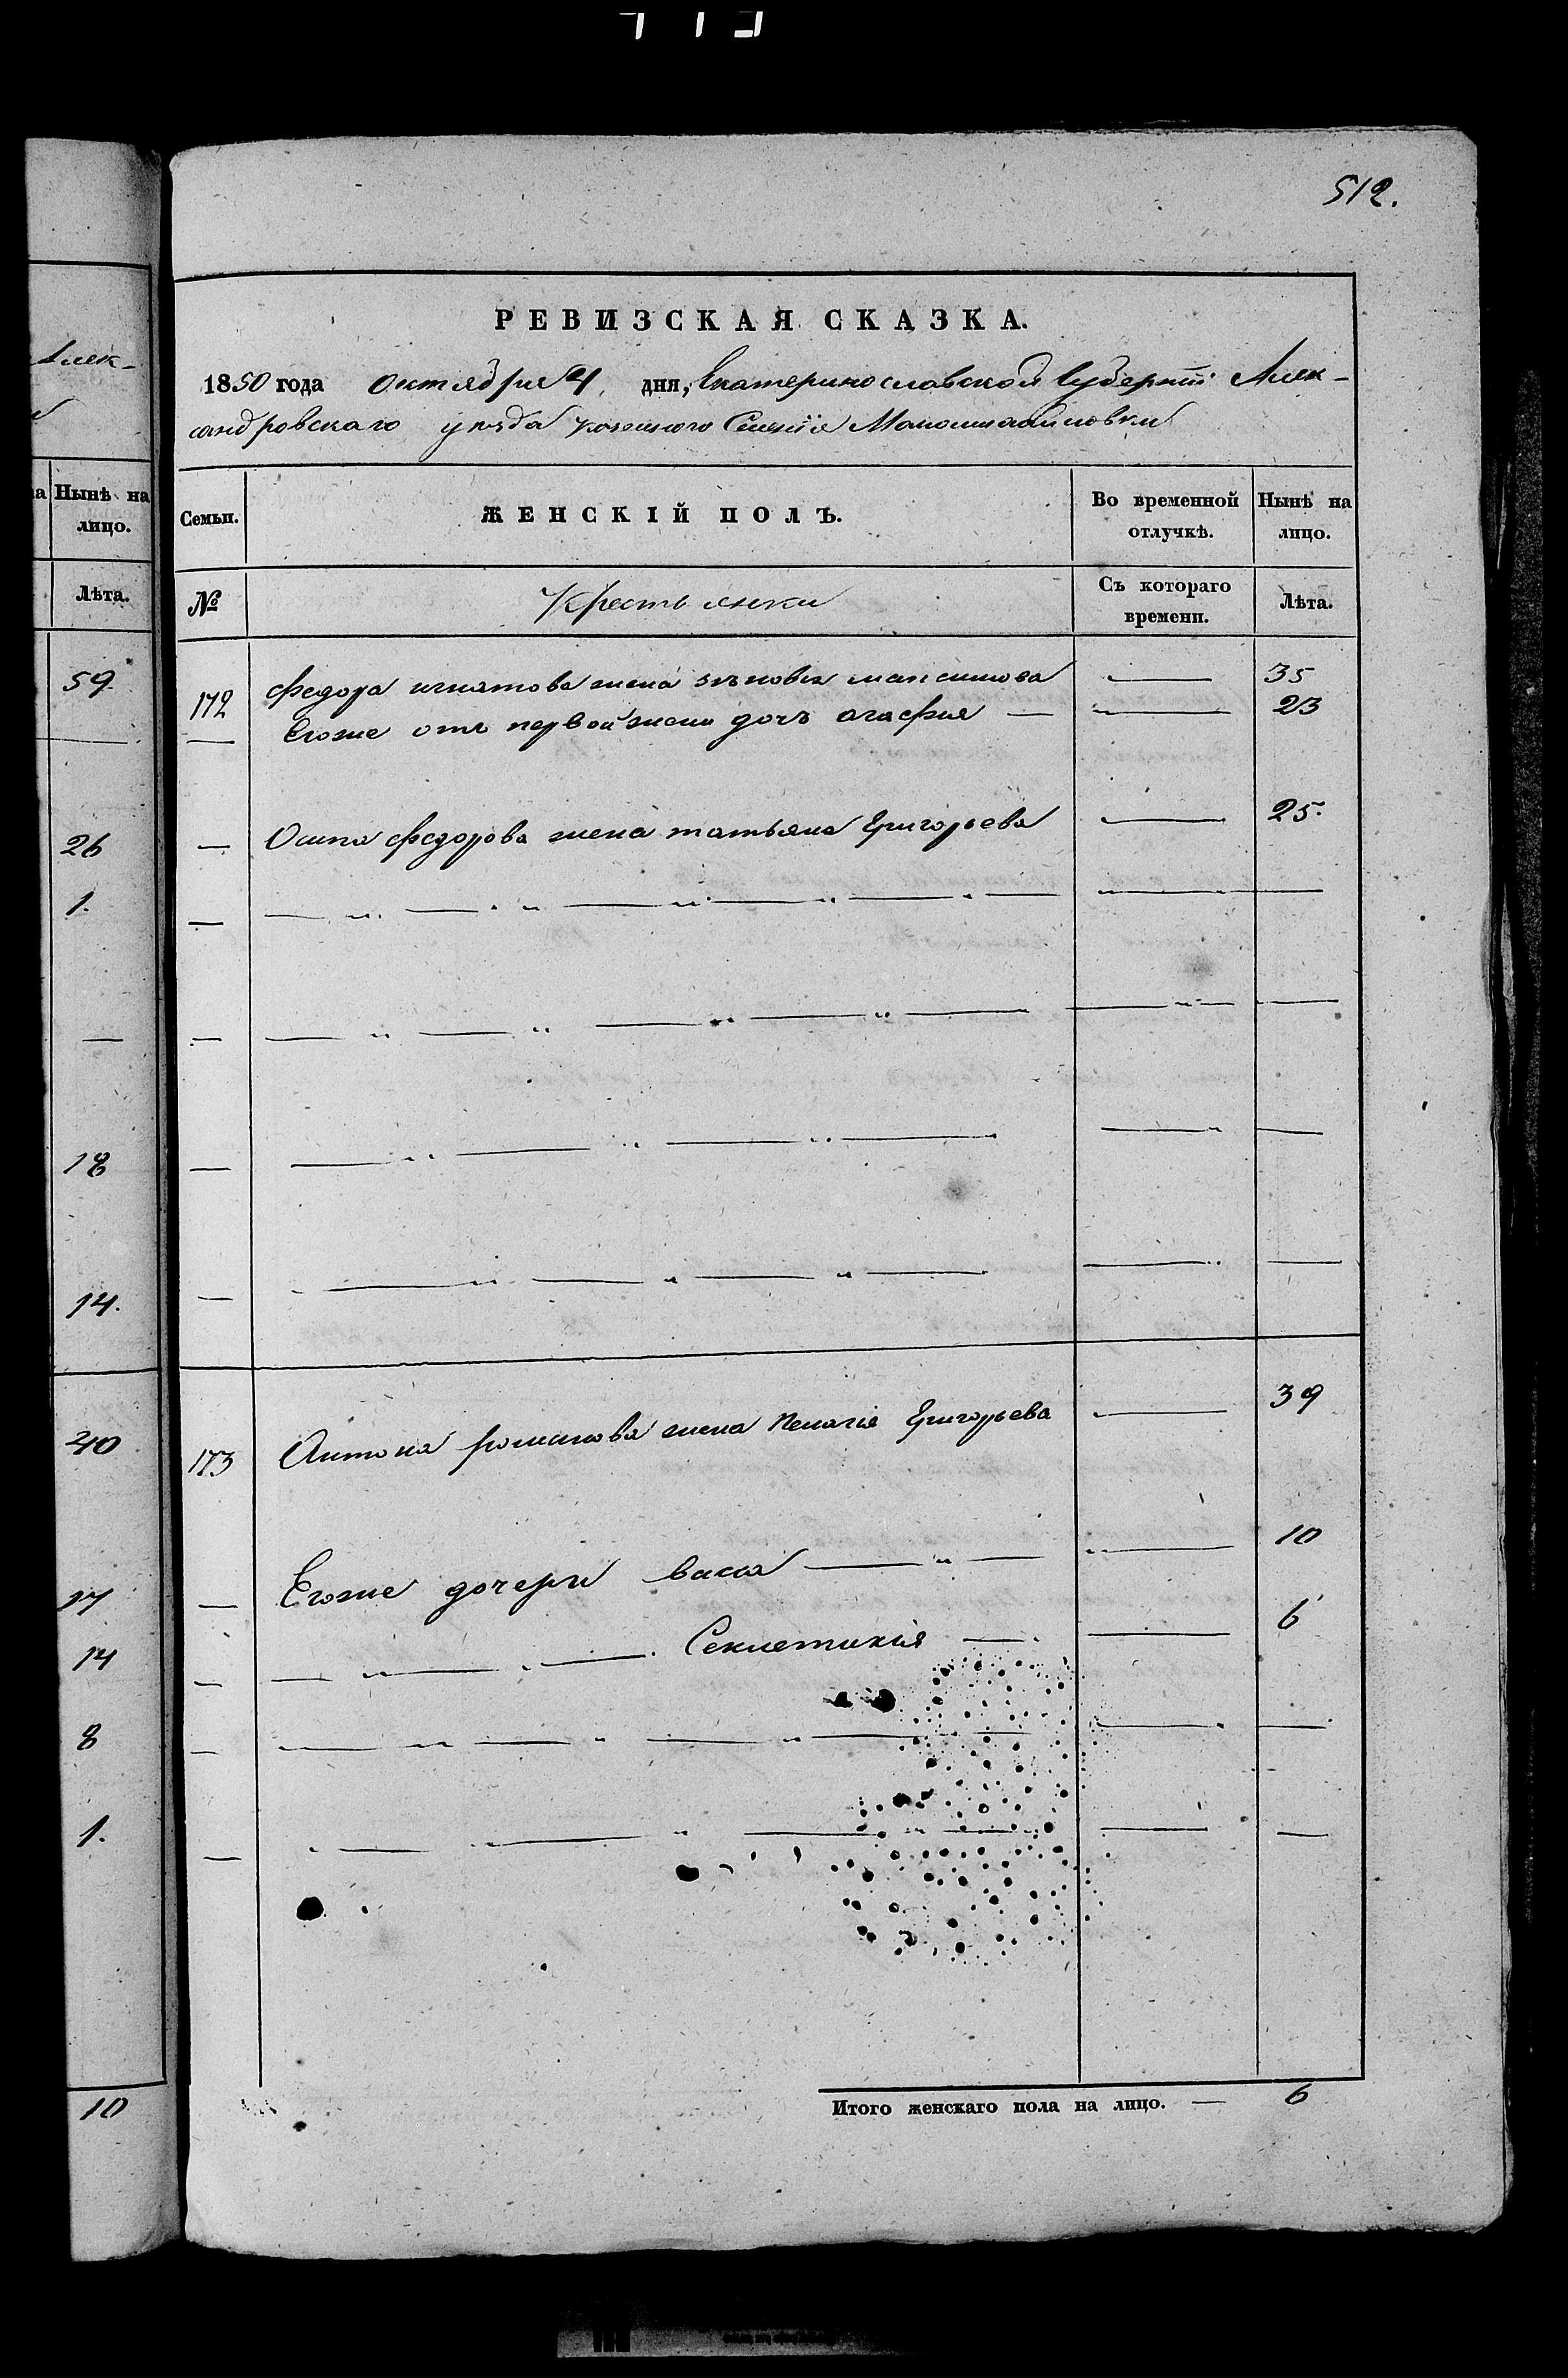 Алек-
Нынѣ на
лицо.
Лѣта.
59.
26
1.
18
14.
40
17
14
8
1.
10
512.
РЕВИЗСКАЯ СКАЗКА.
1850 года Октября 4, дня, Екатеринославской Губерніи Алек-
сандровскаго уезда казенного Селенія Маломихайловки
Семьи. ЖЕНСКІЙ ПОЛЪ. Во временной отлучкѣ. Нынѣ на лицо.
№ Крестьянки Съ котораго времени. Лѣта.
172 Федора игнатова жена зѣновья максимова — 35
— Егоже отъ первой жены дочь агафия — — 23
— Осипа федорова жена татьяна Григорьева — 25.
173 Антона романова жена Пелагія Григорьева — 39
— Егоже дочери васа — „ — — 10
— — „ — Секлетикія — — 6
Итого женскаго пола на лицо. — 6